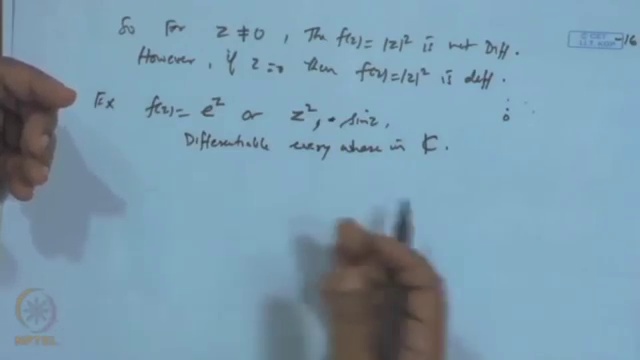 So For z ≠ 0, The f(z) = |z|² is not Diff.
However, if z = 0 then f(z) = |z|² is diff.
Ex f(z) = e^z or z², sin z,
Differentiable every where in ₵.
NPTEL